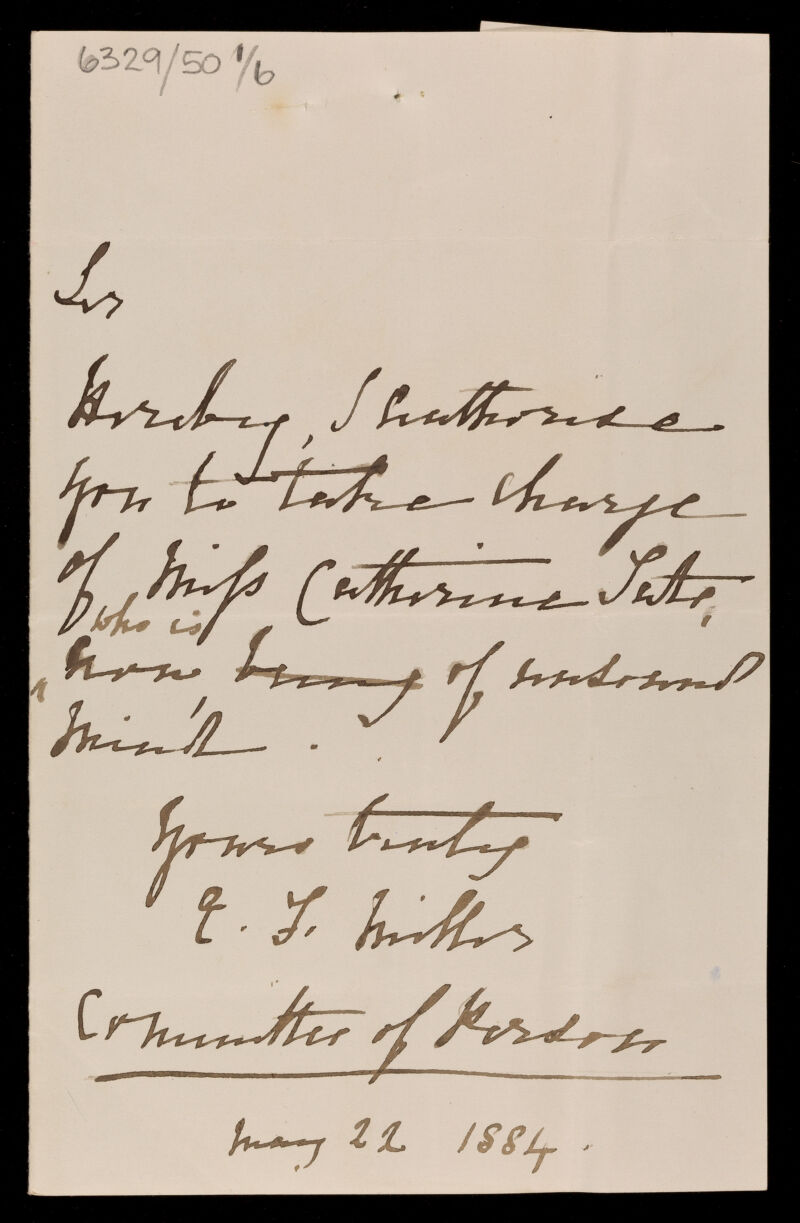 6329/50 1/6
Sir
Hereby, I authorise
you to take charge
of Miss Catherine Tate,
who is
now, being of unsound
Mind.
Yours truly
E. F. Miller
Committee of Person
May 22 1884.